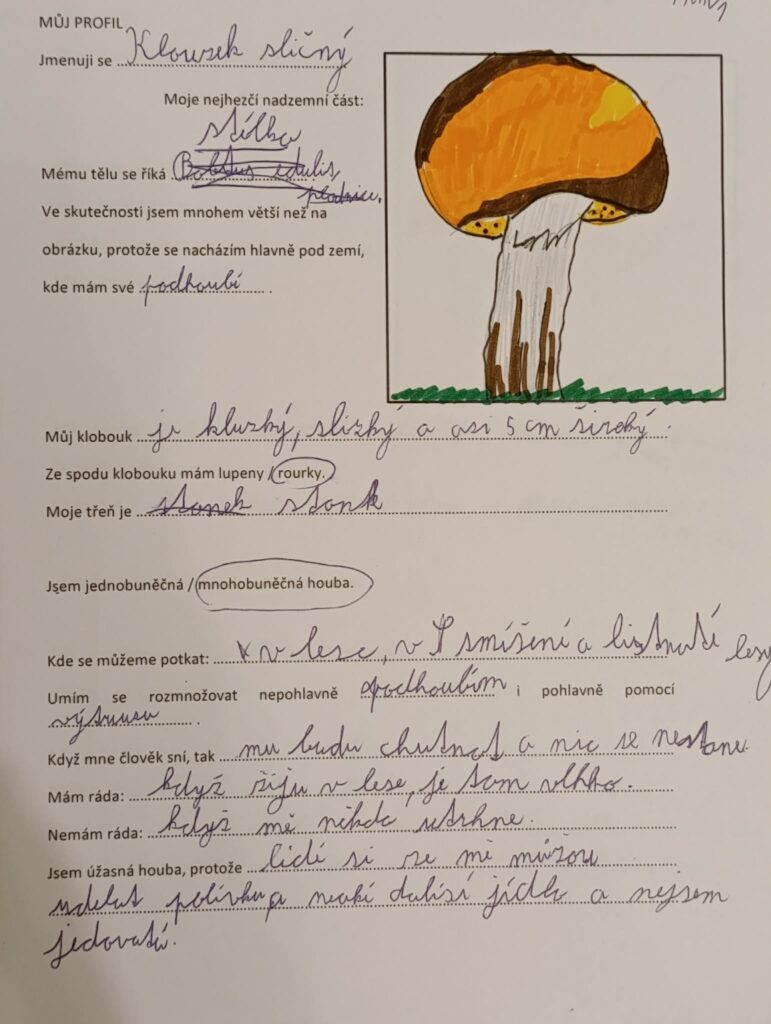 MŮJ PROFIL
Jmenuji se Klouzek sličný
Moje nejhezčí nadzemní část:
Mému tělu se říká stélka
plodnice.
Ve skutečnosti jsem mnohem větší než na
obrázku, protože se nacházím hlavně pod zemí,
kde mám své podhoubí .
Můj klobouk je kluzký, slizký a asi 5 cm široký.
Ze spodu klobouku mám lupeny / rourky.
Moje třeň je stonek stonk
Jsem jednobuněčná / mnohobuněčná houba.
Kde se můžeme potkat: v lese, v smíšení a listnaté lesy
Umím se rozmnožovat nepohlavně podhoubím i pohlavně pomocí
výtrusu .
Když mne člověk sní, tak mu budu chutnat a nic se nestane.
Mám ráda: když žiju v lese, je tam vlhko.
Nemám ráda: když mě někdo utrhne.
Jsem úžasná houba, protože lidí si ze mě můžou
udelat polívku a neaкí dalšsí jídla a nejsem
jedovatá.